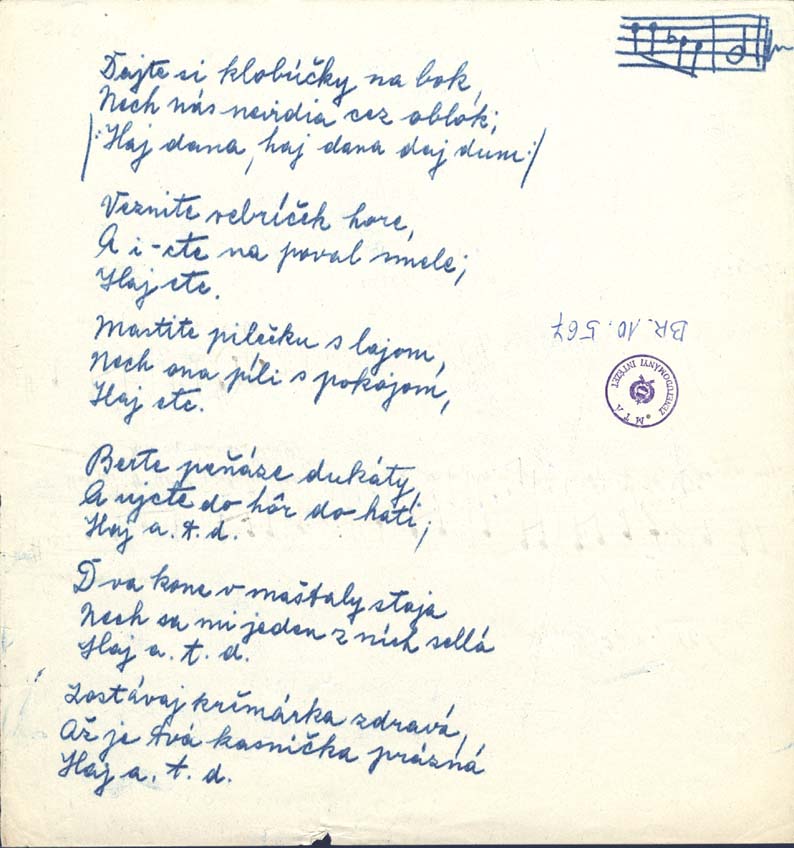 Dajte si klobúčky na bok,
Nech nás nevidia cez oblok;
/: Haj dana, haj dana daj dum :/
Veznite rebríček hore,
A i-cte na poval smele;
Haj etc.
Mastite pilečku s lajom,
Nech ona píli s pokojom,
Haj etc.
Berte peňáze dukáty,
A ujcte do hôr do hati;
Haj a. t. d.
Dva kone v maštaly stoja
Nech sa mi jeden z nich sellá
Haj a. t. d.
Zostávaj krčmárka zdravá,
Až je tvá kasnička prázná
Haj a. t. d.
BR. 10.567
MTA ZENETUDOMÁNYI INTÉZET